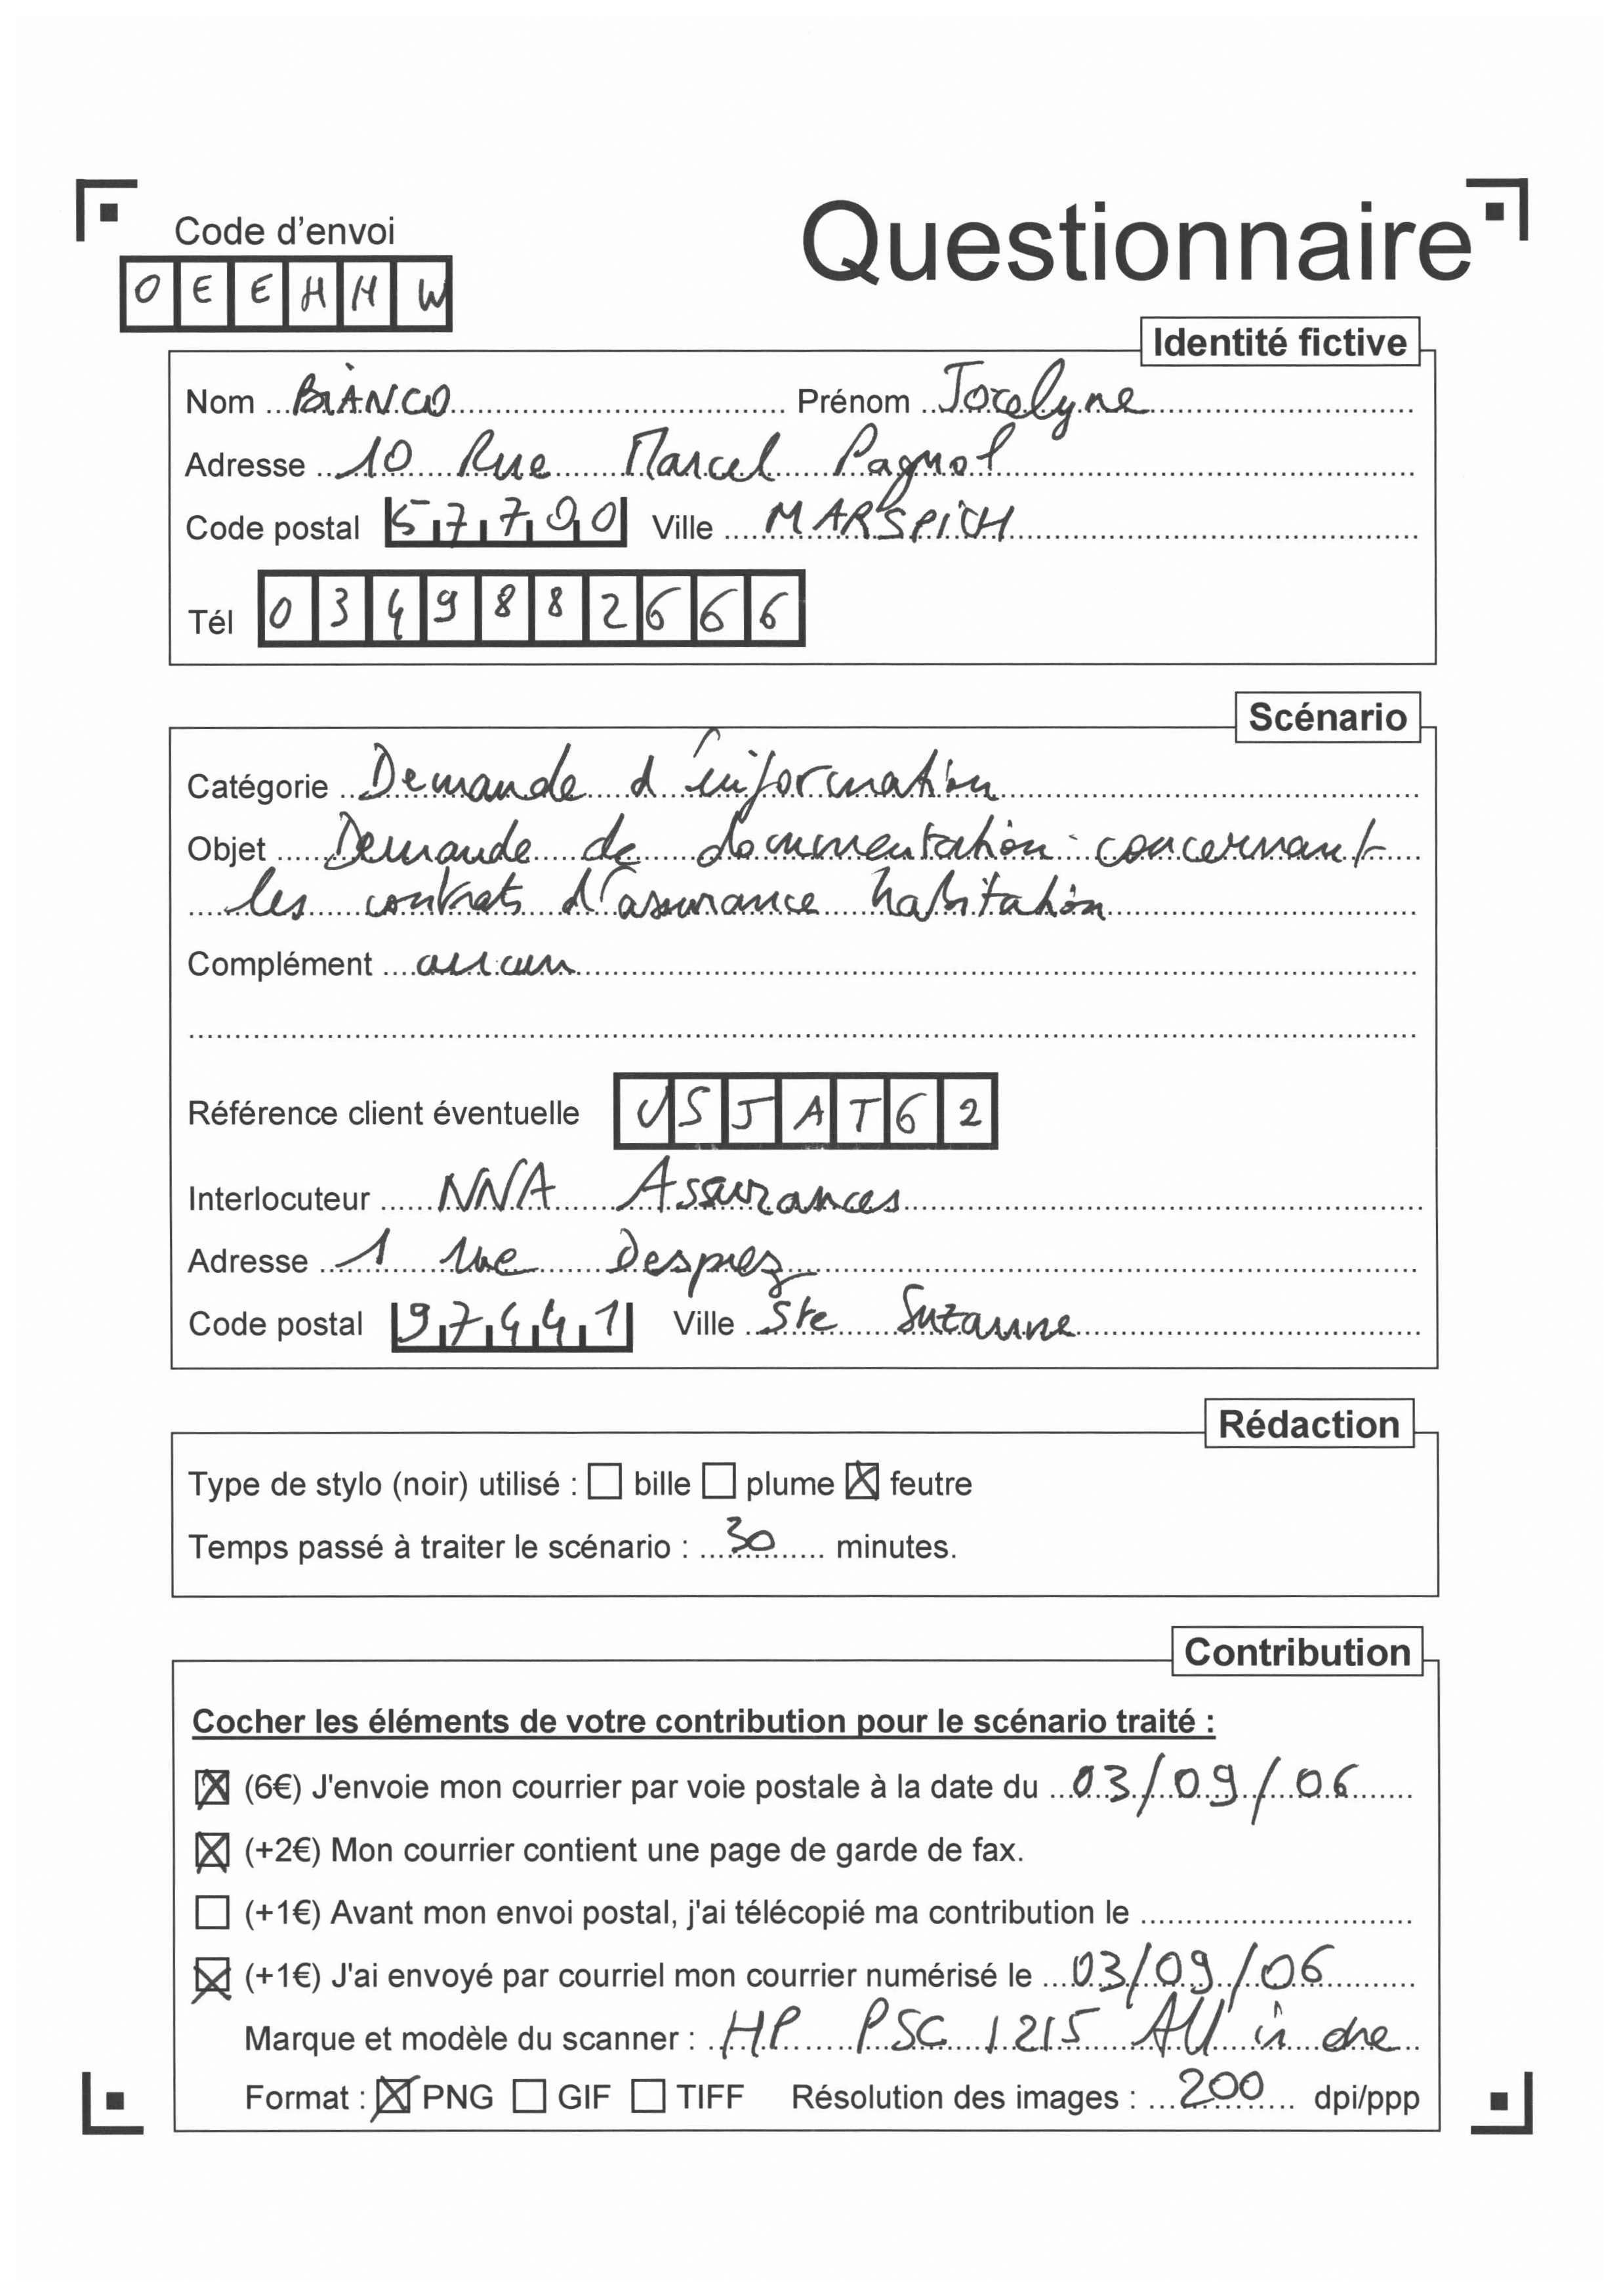 Code d'envoi
Questionnaire
O E E H H W
Identité fictive
Nom BIANCO Prénom Jocelyne
Adresse 10 Rue Marcel Pagnol
Code postal 57700 Ville MARSPICH
Tél 0349882666
Scénario
Catégorie Demande d'information
Objet Demande de documentation concernant
les contrats d'assurance habitation
Complément aucun
Référence client éventuelle USJAT62
Interlocuteur NNA Assurances
Adresse 1 rue Desprez
Code postal 97441 Ville Ste Suzanne
Rédaction
Type de stylo (noir) utilisé : ☐ bille ☐ plume ☒ feutre
Temps passé à traiter le scénario : 30 minutes.
Contribution
Cocher les éléments de votre contribution pour le scénario traité :
☒ (6€) J'envoie mon courrier par voie postale à la date du 03/09/06
☒ (+2€) Mon courrier contient une page de garde de fax.
☐ (+1€) Avant mon envoi postal, j'ai télécopié ma contribution le
☒ (+1€) J'ai envoyé par courriel mon courrier numérisé le 03/09/06
Marque et modèle du scanner : HP PSC 1215 All in one
Format : ☒ PNG ☐ GIF ☐ TIFF Résolution des images : 200 dpi/ppp